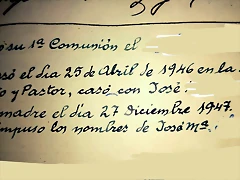 su 1ª Comunión el
só el dia 25 de Abril de 1946 en la
o y Pastor, casó con José.
madre el día 27 diciembre 1947.
mpuso los nombres de José Mª.